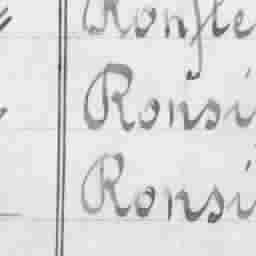 Ronfle
Ronsi
Ronsi